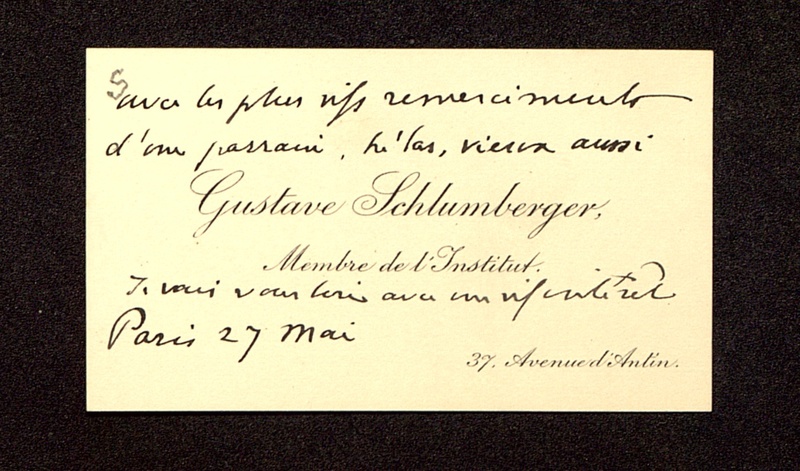 S
avec les plus vifs remerciments
d'un parrain, hélas, vieux aussi
Gustave Schlumberger,
Membre de l'Institut.
Je vais vous lire avec un vif intérêt
Paris 27 Mai
37, Avenue d'Antin.